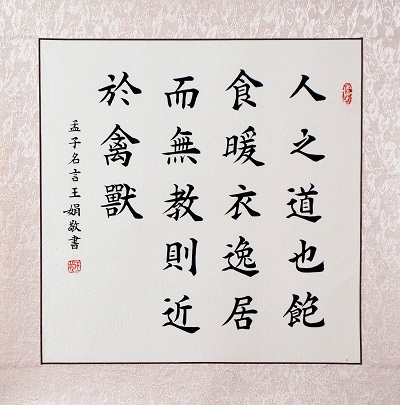 人之道也飽
食暖衣逸居
而無教則近
於禽獸
孟子名言王娟敬書